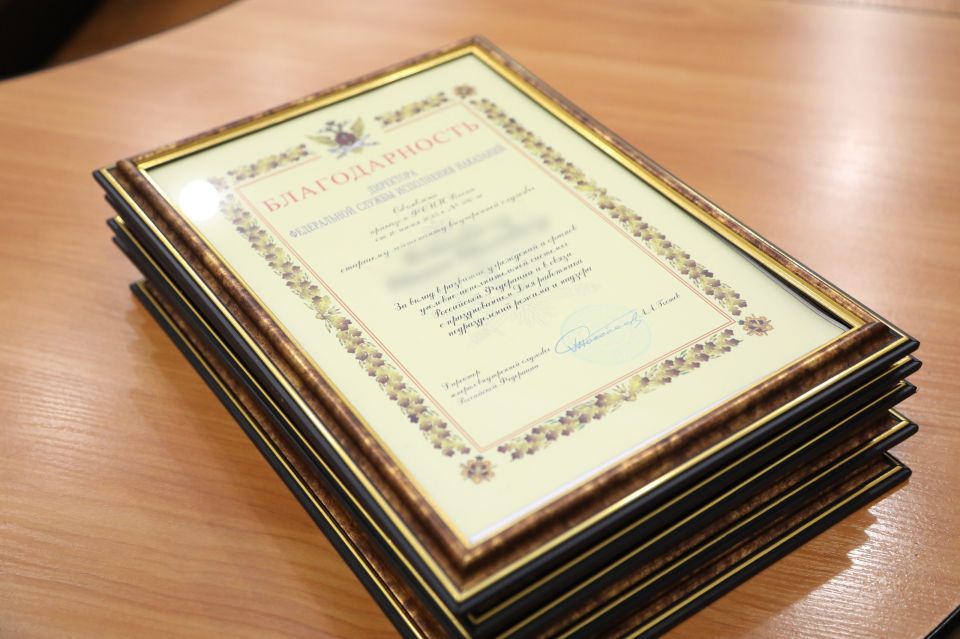 БЛАГОДАРНОСТЬ
ДИРЕКТОРА
ФЕДЕРАЛЬНОЙ СЛУЖБЫ ИСПОЛНЕНИЯ НАКАЗАНИЙ
Объявлена
приказом ФСИН России
старшему лейтенанту внутренней службы
За вклад в развитие учреждений и органов
уголовно-исполнительной системы
Российской Федерации и в связи
с празднованием Дня работника
подразделений режима и надзора
Директор
генерал внутренней службы
Российской Федерации